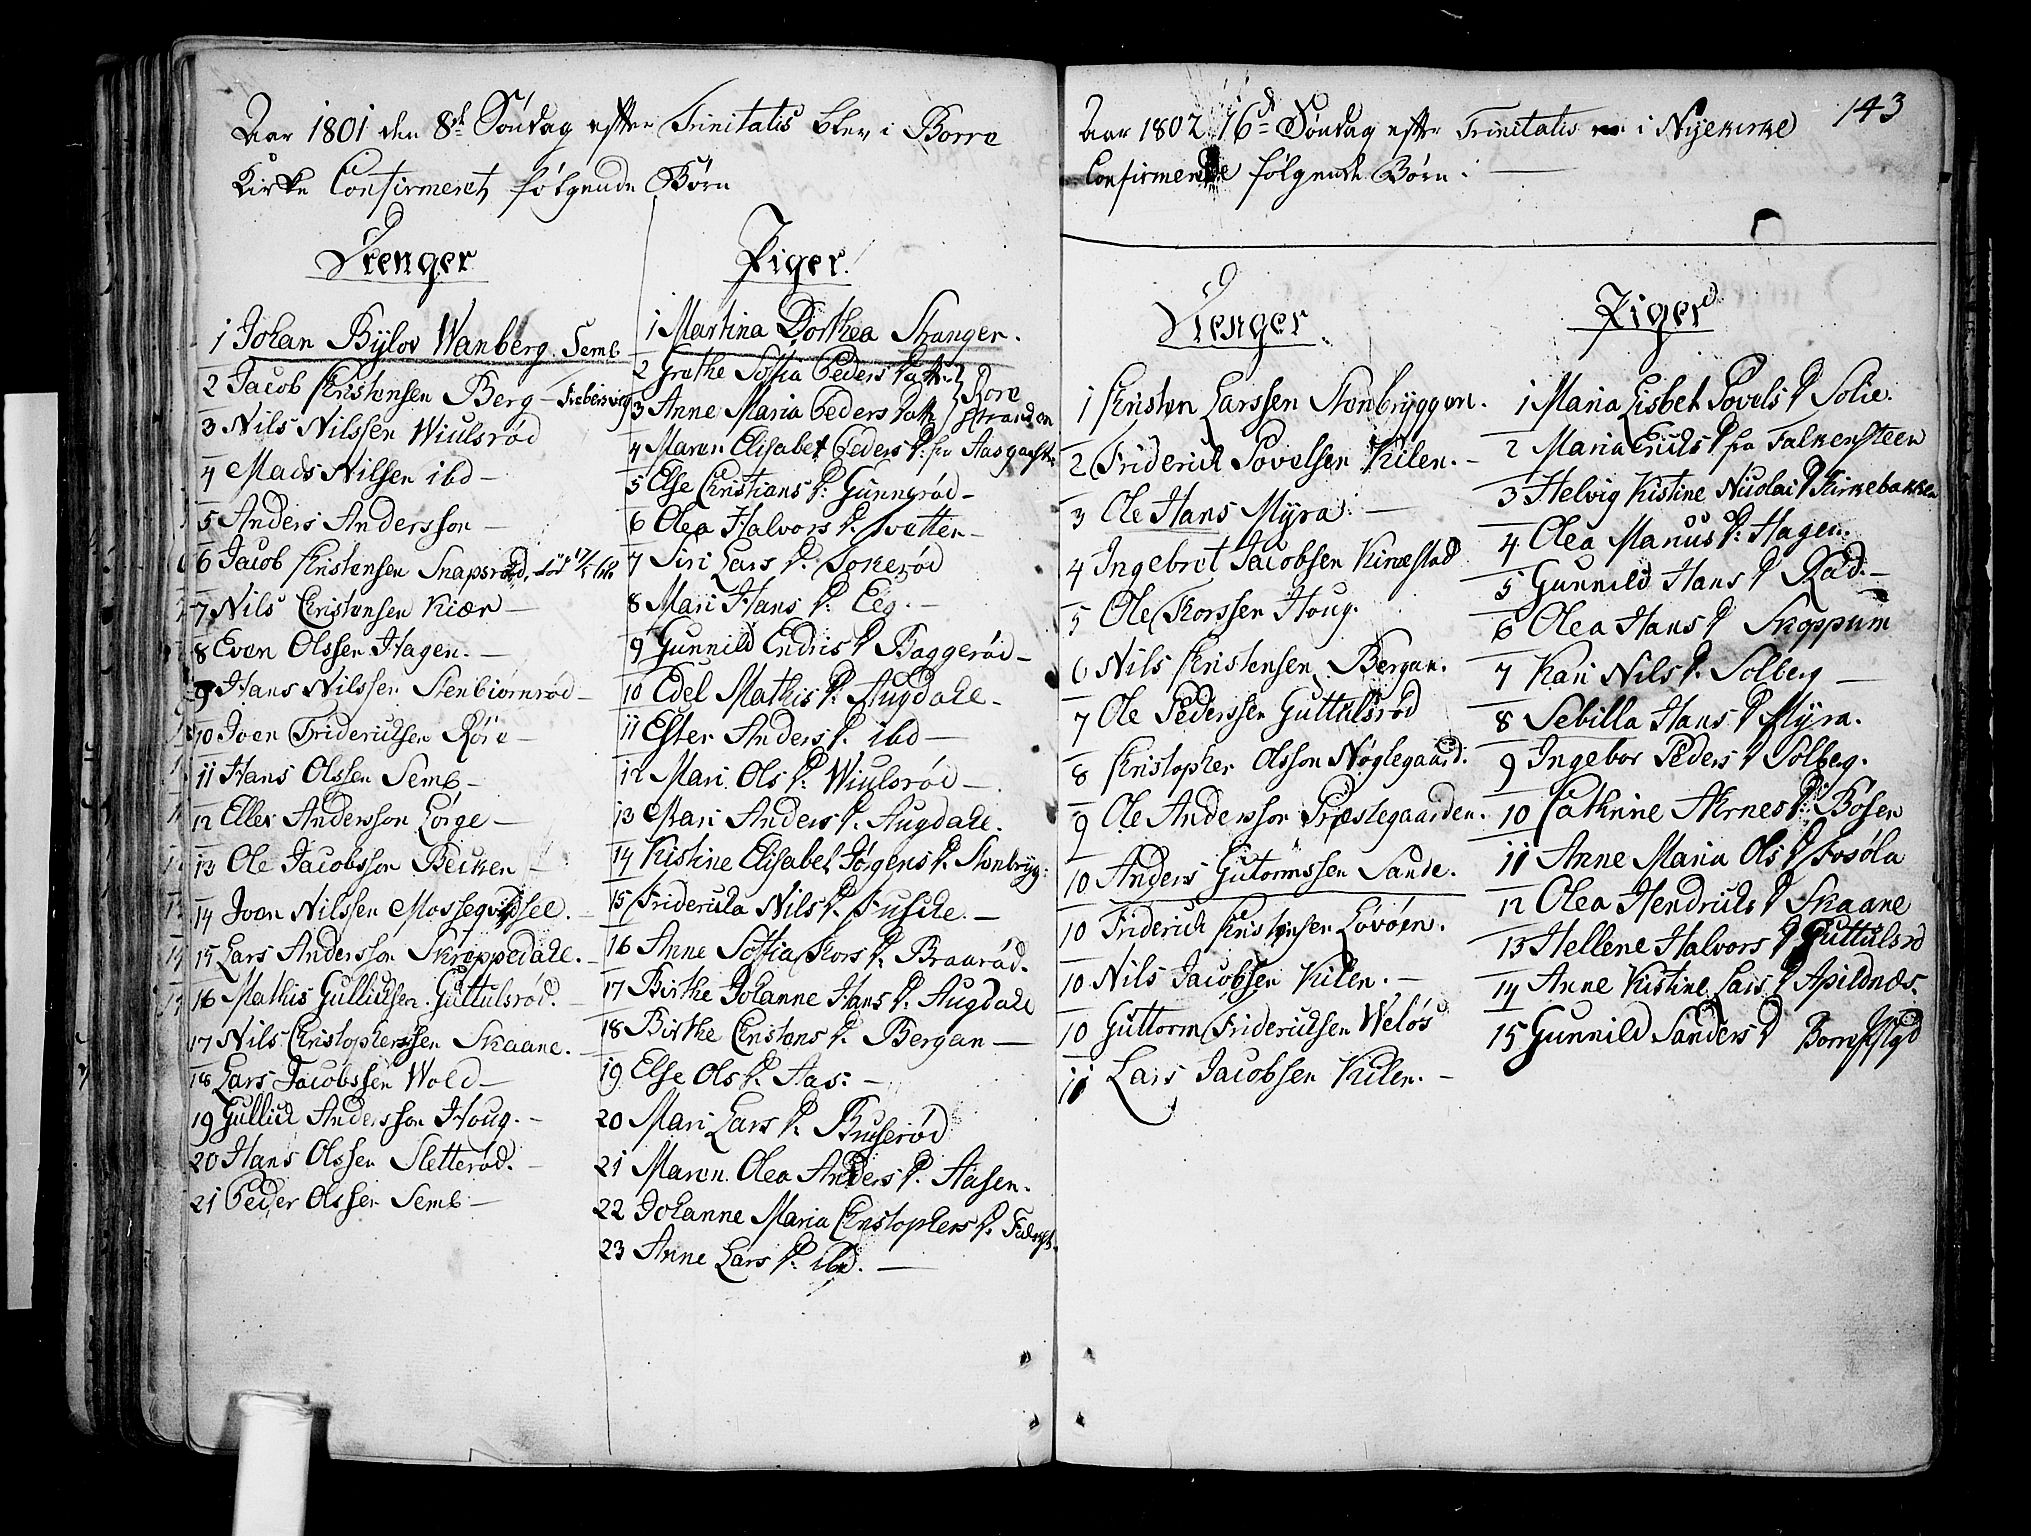 Aar 1801 den 8de Søndag efter Trinitatis blev i Borre
Kirke Confirmeret følgende Børn
Drenger
1 Johan Bylov Wanberg. Semb
2 Jacob Kristensen Berg -
3 Nils Nilssen Wiulsrød
4 Mads Nilsen ibd -
5 Anders Andersson -
6 Jacob Kristensen Snapsrød.
7 Nils Christensen Kiær -
8 Even Olssen Hagen. -
9 Hans Nilssen Stenbiørnrød -
10 Joen Fridericksen Røre -
11 Hans Olssen Semb -
12 Eller Andersson Lørge -
13 Ole Jacobsson Becken -
14 Joen Nilssen
15 Lars Andersson Skreppedale. -
16 Mathis Gullicksen Guttulsrød.
17 Nils Christopherssen Skaane. -
18 Lars Jacobssen Wold -
19 Gullick Andersson Houg. -
20 Hans Olssen Sletterød. -
21 Peder Olssen Semb -
Piger
1 Martina Dorthea Stranger.
2 Grethe Soffia Peders Datter } Røre
3 Anne Maria Peders Datter } Stranden
4 Maren Elisabet Peders D: fra Aasgaard
5 Else Christians D: Gunnerød -
6 Olea Halvors D. Tvetten -
7 Siri Lars D. Tokerød
8 Mari Hans D. Eeg. -
9 Gunnild Endris D Baggerød -
10 Edel Mathis D. Augdale -
11 Ester Anders D. ibd -
12 Mari Ols D. Wiulsrød -
13 Mari Anders D. Augdale.
14 Kistine Elisabet Jørgens D. Stenbryg:
15 Fridericka Nils D. Fuskele. -
16 Anne Soffia Thors D. Braarød.
17 Birthe Johanne Hans D. Augdale
18 Birthe Christens D. Bergan -
19 Else Ols D. Aas: -
20 Mari Lars D. Bruserød
21 Maren Olea Anders D. Aasen.
22 Johanne Maria Christophers D.
23 Anne Lars D. ibd. -
143
Aar 1802 16de Søndag efter Trinitatis i Nyekirke
Confirmerede følgende Børn: -
Drenger
1 Kristen Larssen Stenbryggen.
2 Friderick Povelsen Kilen. -
3 Ole Hans Myra: -
4 Ingebret Jacobsen Kirkestad
5 Ole Thorssen Houg.
6 Nils Kristensen Bergan.
7 Ole Pederssen Guttulsrød
8 Kristopher Olsson Nøglegaard.
9 Ole Andersson Præstegaarden.
10 Anders Gutormssen Sande.
10 Friderick Kristensen Løvøen.
10 Nils Jacobsen Kilen. -
10 Guttorm Fridericksen Weløs
11 Lars Jacobsen Kilen. -
Piger
1 Maria Lisbet Povels D Solie.
2 Maria Ericks D fra Falkensteen
3 Helvig Kistine Nicolai D Kirkebakken
4 Olea Manus D: Hagen.
5 Gunnild Hans D Rød. -
6 Olea Hans D Skoppum
7 Kari Nils D. Solberg -
8 Sebilla Hans D Myra.
9 Ingebor Peders D Solberg.
10 Cathrine Arnes D: Bosen
11 Anne Maria Ols D Fosøla
12 Olea Hendricks D Skaane
13 Hellene Halvors D Guttulsrd
14 Anne Kistine Lars D Apildnæs.
15 Gunnild Sanders D